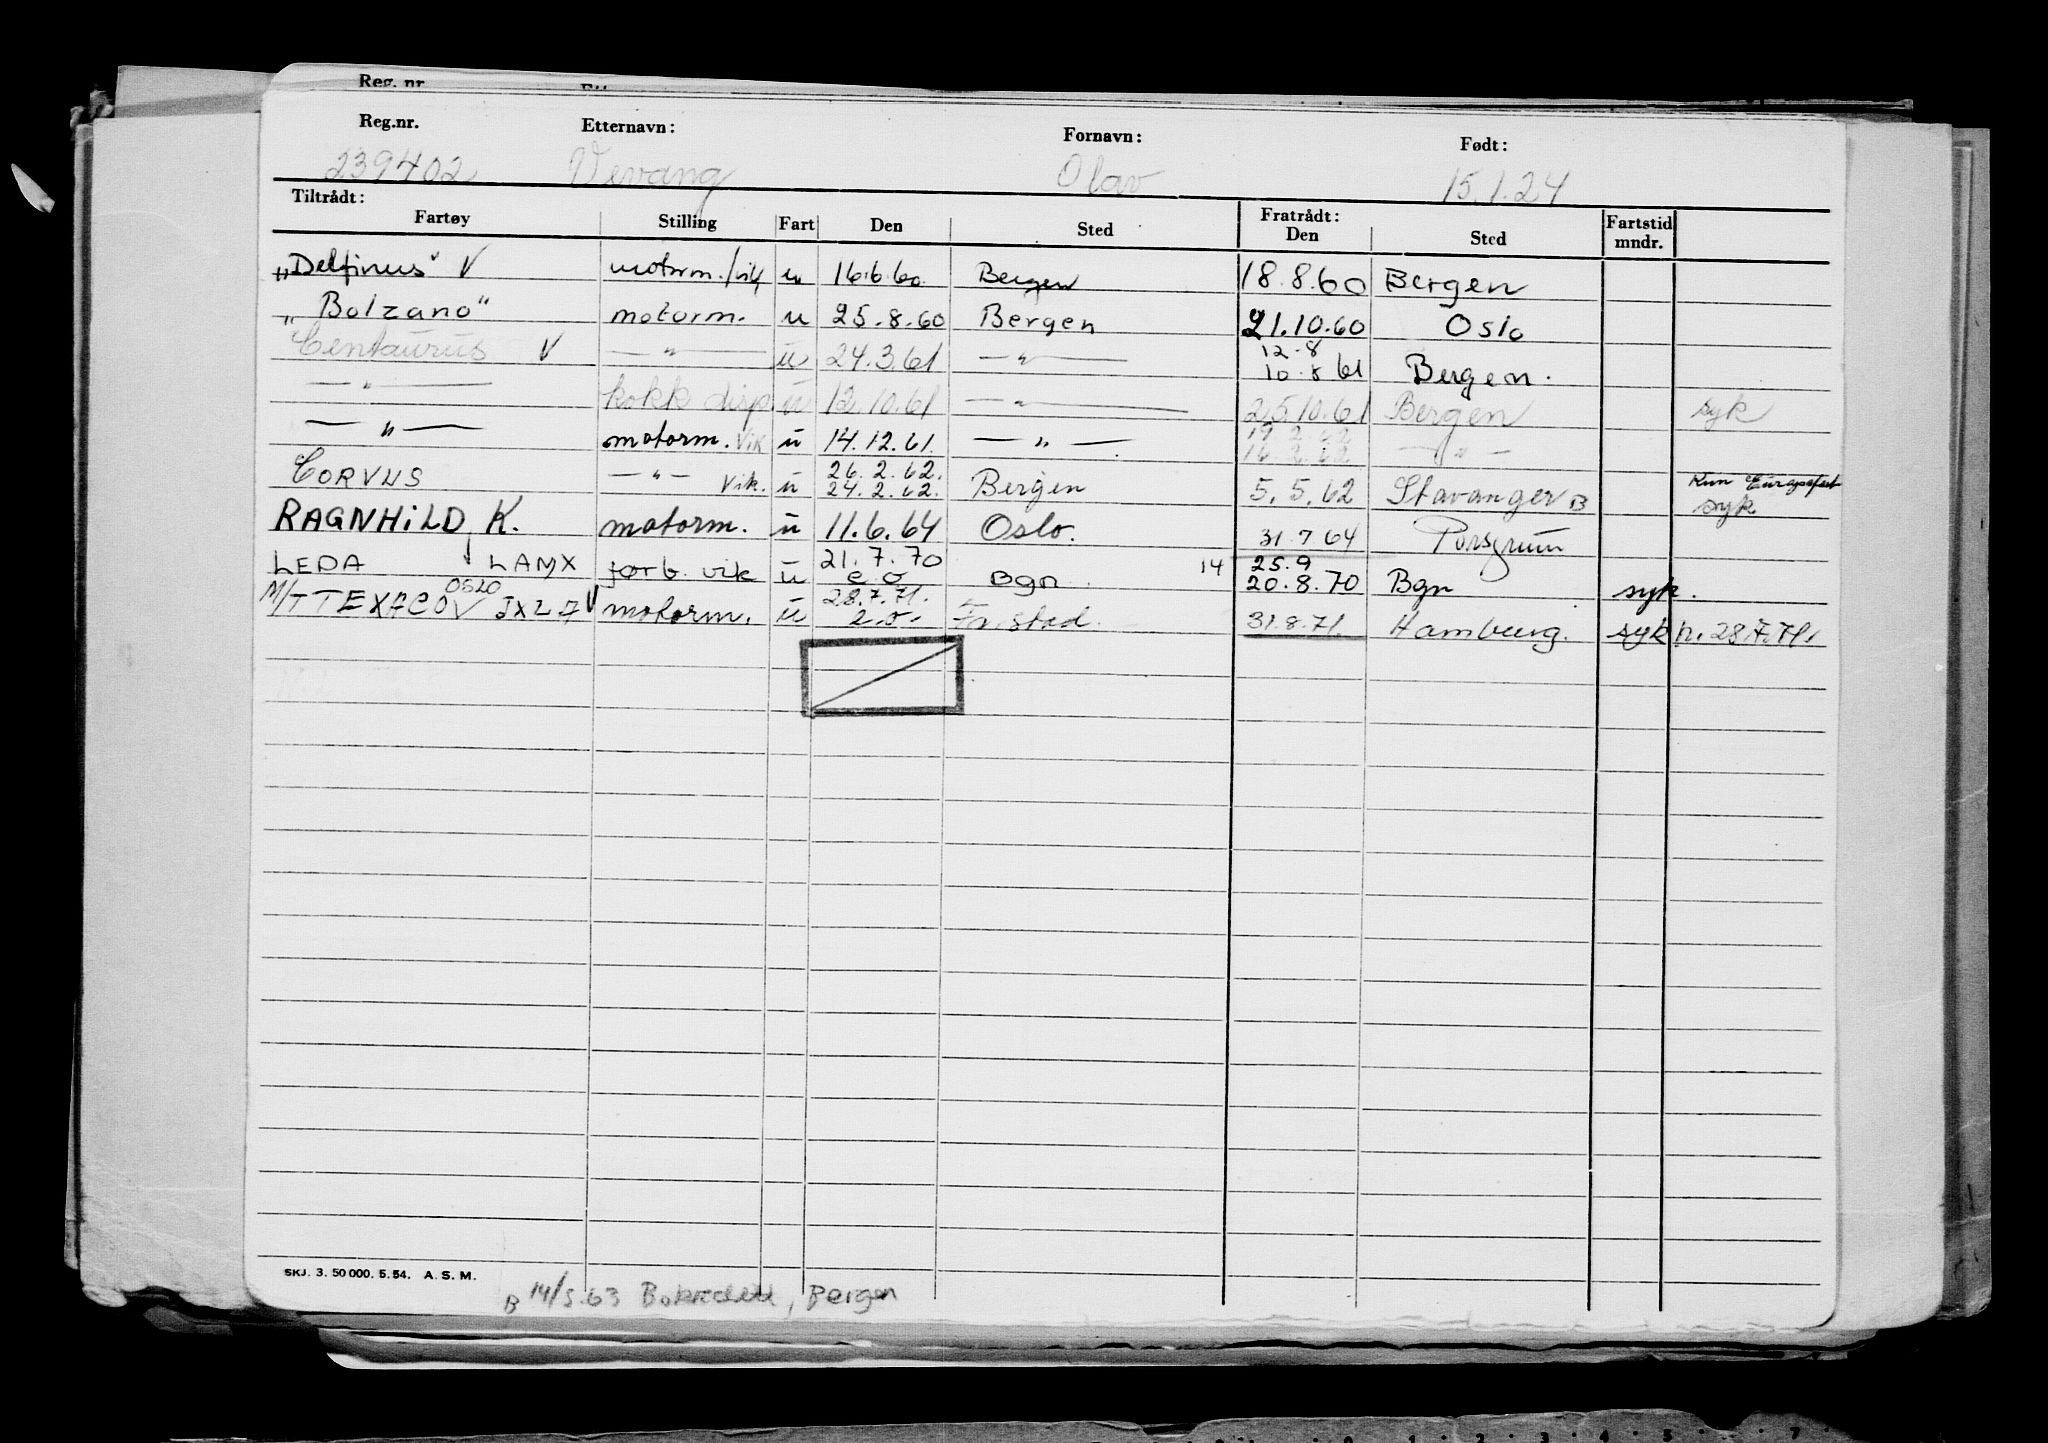 Reg. nr
Reg.nr. Etternavn: Fornavn: Født:
239402 Vevang Olav 15.1.24
Tiltrådt: Fratrådt:
Fartøy Stilling Fart Den Sted Den Sted Fartstid mndr.
"Delfinus" V motorm./vik u 16.6.60 Bergen 18.8.60 Bergen
"Bolzano" motorm. u 25.8.60 Bergen 21.10.60 Oslo
Centaurus V —"— u 24.3.61 —"— 12.8 10.8 61 Bergen.
—"— kokk disp u 12.10.61 —"— 25.10.61 Bergen syk
—"— motorm. vik u 14.12.61. —"— 19.2.62 16.2.62 —"—
CORVUS —"— vik. u 26.2.62. 24.2.62. Bergen 5.5.62 Stavanger B Kun Europafart syk
RAGNHILD K. motorm. u 11.6.64 Oslo. 31.7 64 Porsgrunn
LEDA LAMX førb. vik u 21.7.70 e.o Bgn 14 25.9 20.8.70 Bgn syk.
M/T TEXACO OSLO JXZA V motorm. u 28.7.71. e.o. Fr.stad. 31.8.71. Hamburg. syk p. 28.7.71.
SKJ. 3. 50 000. 5. 54. A. S. M.
B 14/5.63 , Bergen